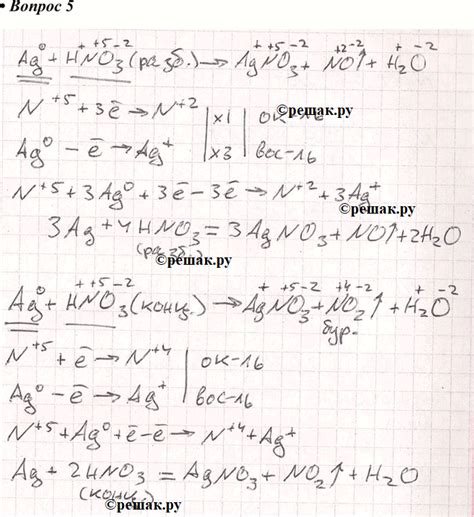 • Вопрос 5
Ag⁰ + H⁺N⁺⁵O₃⁻² (разб.) → Ag⁺N⁺⁵O₃⁻² + N⁺²O⁻²↑ + H₂⁺O⁻²
N⁺⁵ + 3ē → N⁺² | x1 | ок-ль
©решак.ру
Ag⁰ − ē → Ag⁺ | x3 | вос-ль
N⁺⁵ + 3Ag⁰ + 3ē − 3ē → N⁺² + 3Ag⁺
©решак.ру
3Ag + 4HNO₃ = 3AgNO₃ + NO↑ + 2H₂O
(разб.)
©решак.ру
Ag⁰ + H⁺N⁺⁵O₃⁻² (конц.) → Ag⁺N⁺⁵O₃⁻² + N⁺⁴O₂⁻²↑ + H₂⁺O⁻²
бур.
N⁺⁵ + ē → N⁺⁴ | ок-ль
Ag⁰ − ē → Ag⁺ | вос-ль
N⁺⁵ + Ag⁰ + ē − ē → N⁺⁴ + Ag⁺
Ag + 2HNO₃ = AgNO₃ + NO₂↑ + H₂O
(конц.)
©решак.ру